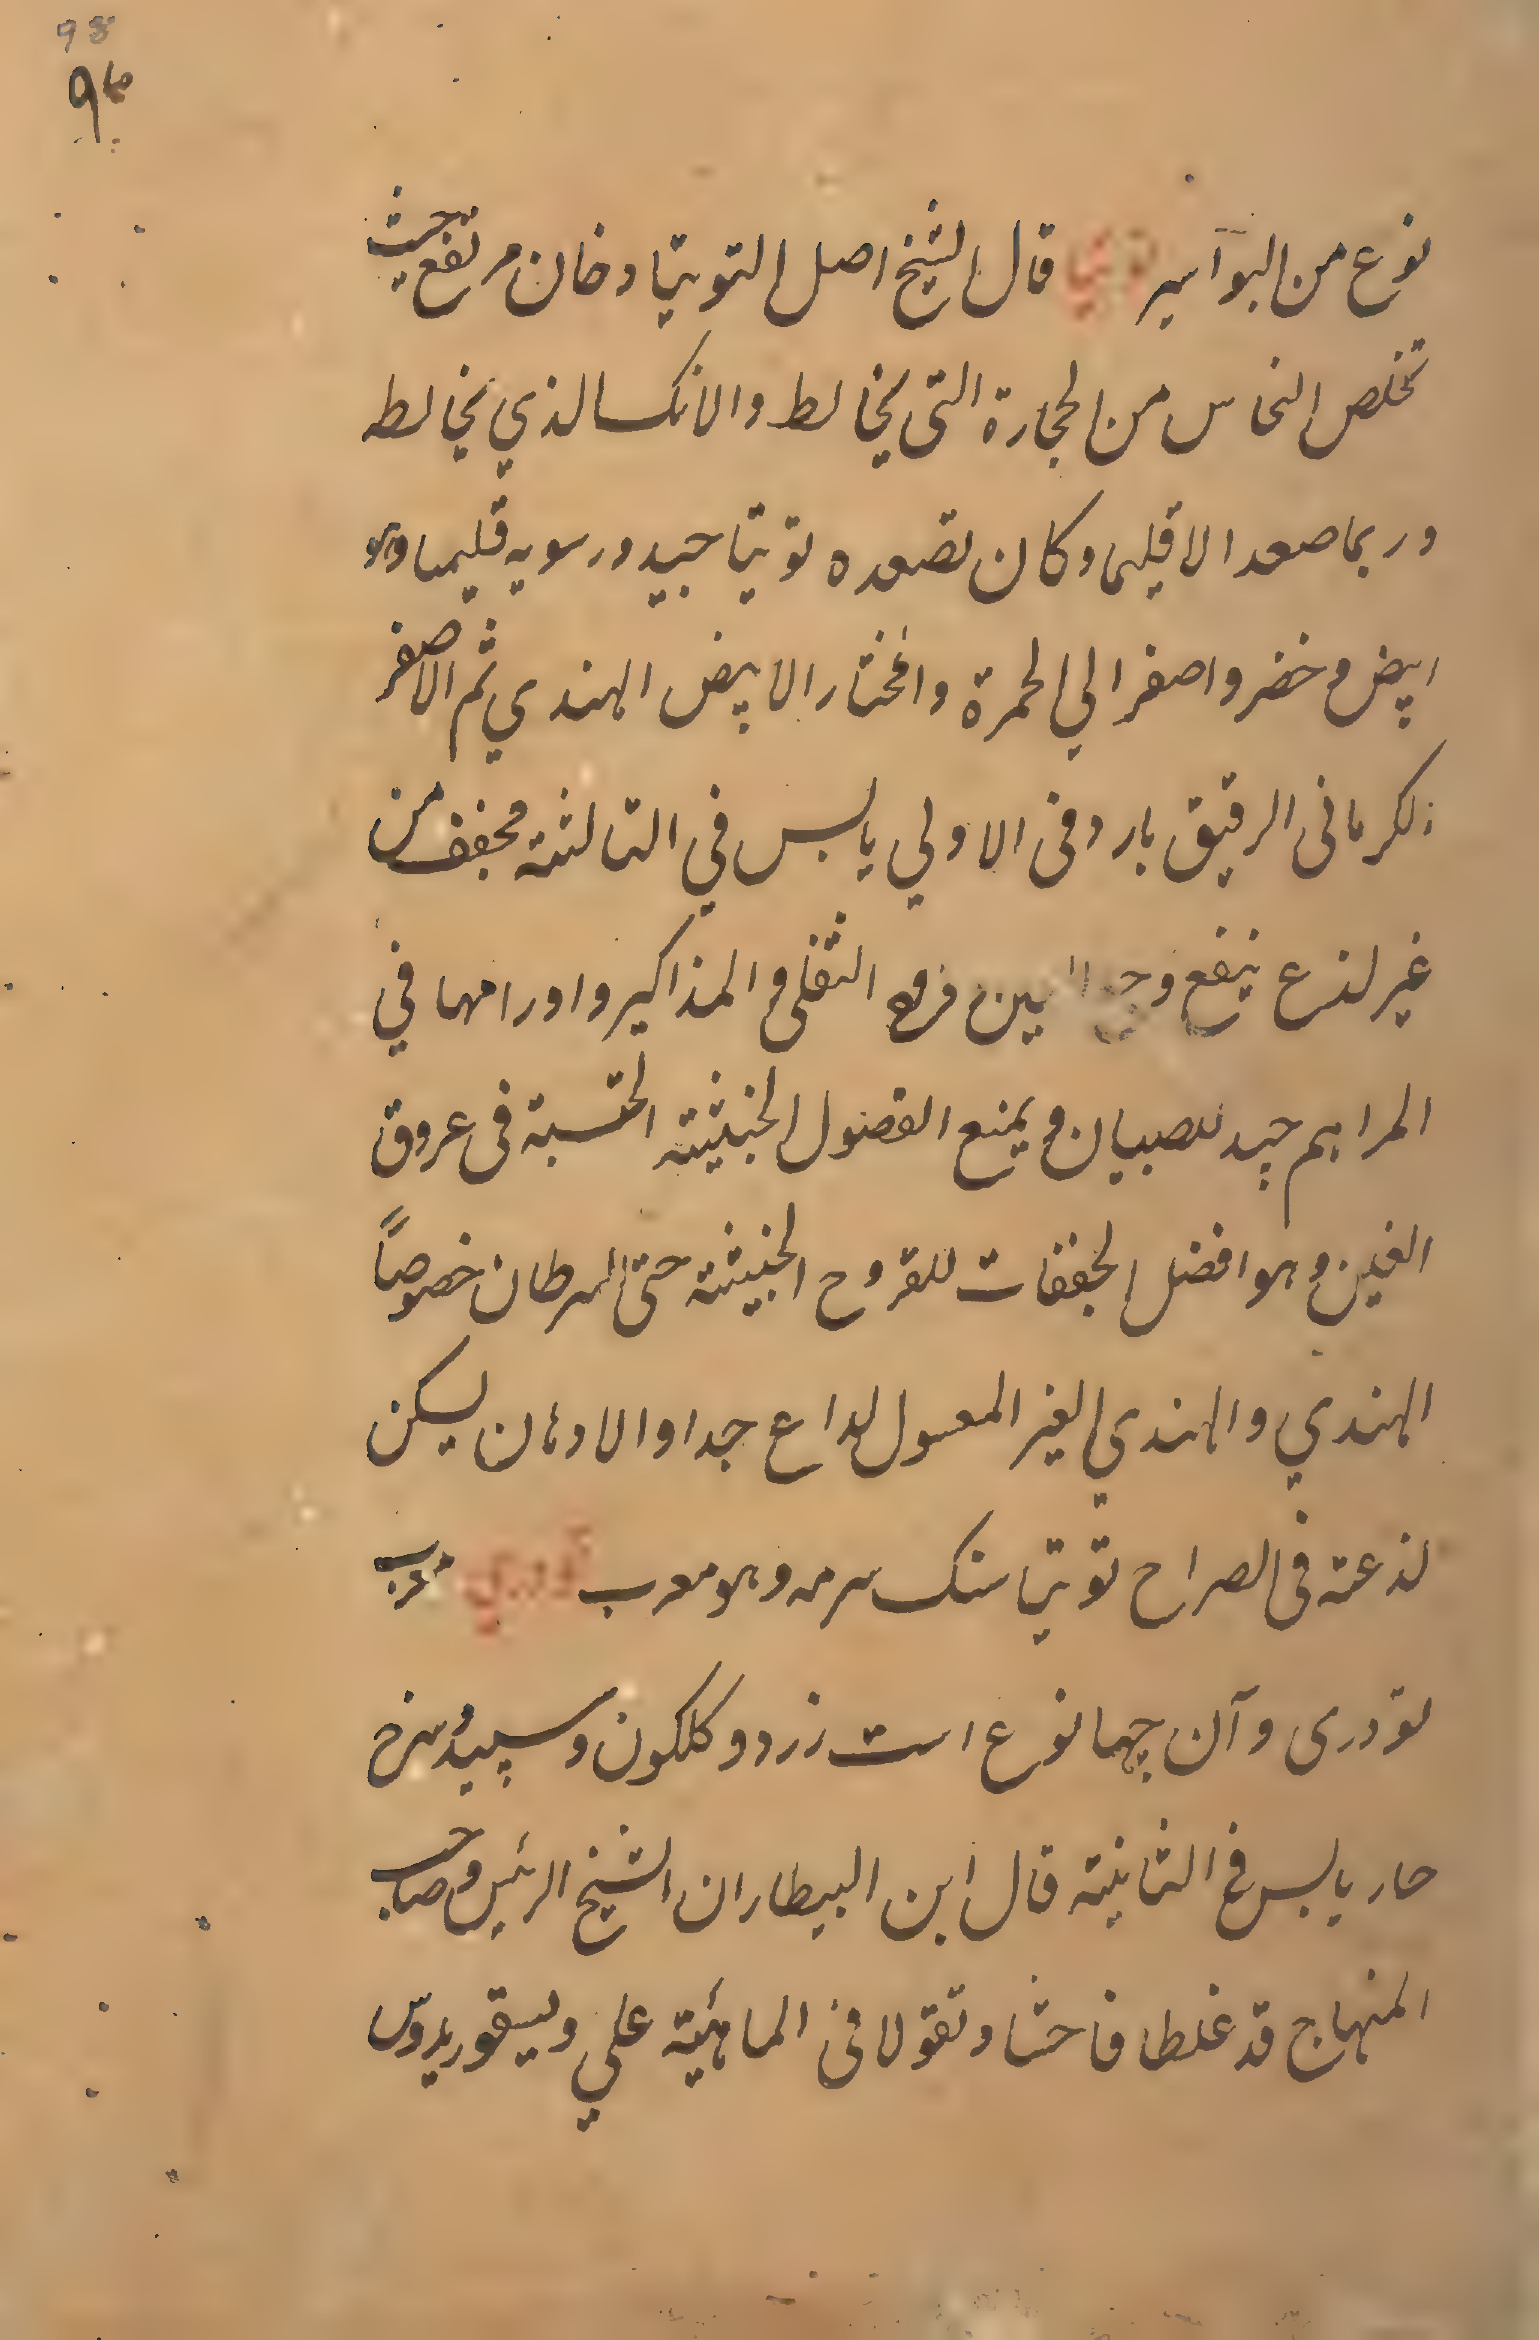 98
نوع من البوآسير توتيا قال الشيخ اصل التوتيا دخان مرتفع حيث
تخلص النحاس من الحجارة التى يخالط والانك الذي يخالطه
وربما صعد الاقليما وكان تصعده توتيا جيد ورسوبه قليما وهو
ابيض و خضر واصفر الي الحمرة والمختار الابيض الهندي ثم الاصفر
الكرمانى الرقيق بارد فى الاولي يابس في الثالثة مجفف من
غير لذع ينفع وجع العين و قروح و المذاكير واورامها في
المراهم جيد للصبيان و يمنع الفضول الخبيثة المحتسبة فى عروق
العين و هو افضل المجففات للقروح الخبيثة حتى السرطان خصوصاً
الهندي والهندي الغير المغسول لداع جدا والادهان يسكن
لذعته فى الصراح توتيا سنك سرمه وهو معرب تودري معرب
تودرى وآن چهار نوع است زرد و كلكون و سپيد و سرخ
حار يابس في الثانية قال ابن البيطار ان الشيخ الرئيس و صاحب
المنهاج قد غلطا فاحشا و تقولا فى الماهية علي ديسقوريدوس